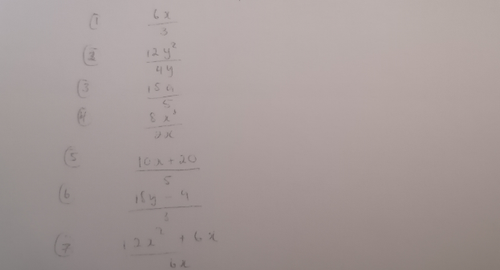 ① 6x/3
② 12y²/4y
③ 15n/5
④ 8x²/4x
⑤ (10x + 20)/5
⑥ 18y - 4
⑦ (12x² + 6x)/6x